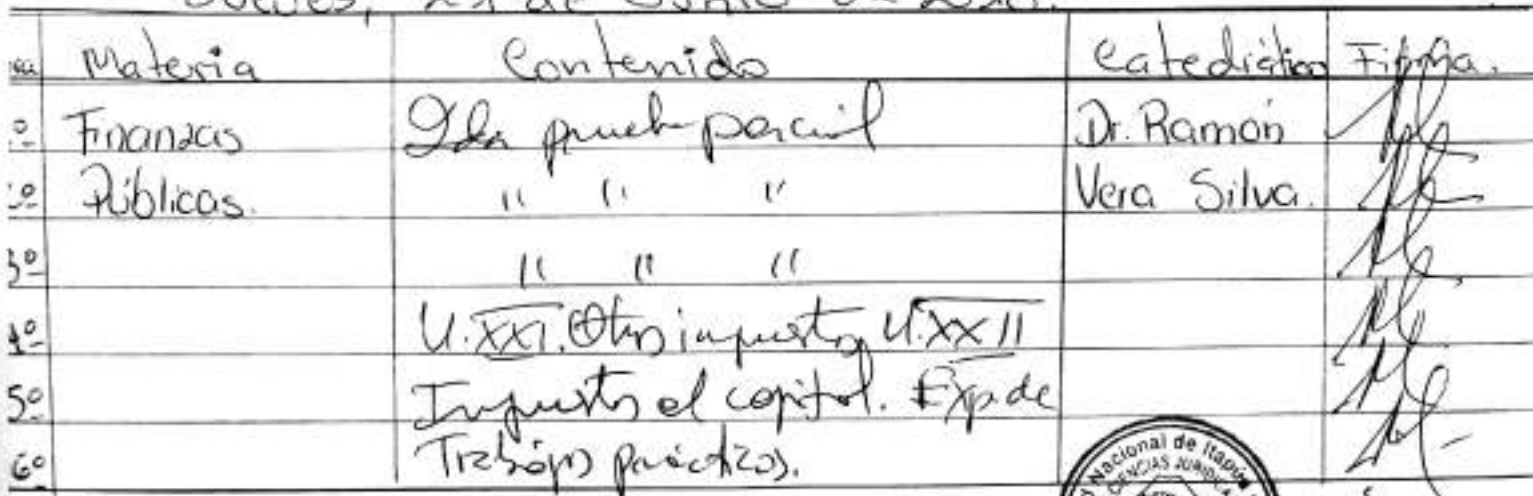 de Junio
Materia Contenido Catedrático Firma.
Finanzas 2da prueba parcial Dr. Ramón
Públicas. " " " Vera Silva.
3º " " "
4º U. XXI. Otros impuestos U. XXII
5º Impuestos al capital. Exp de
6º Trabajos prácticos.
Nacional de Itapúa
CIENCIAS JURÍDICAS